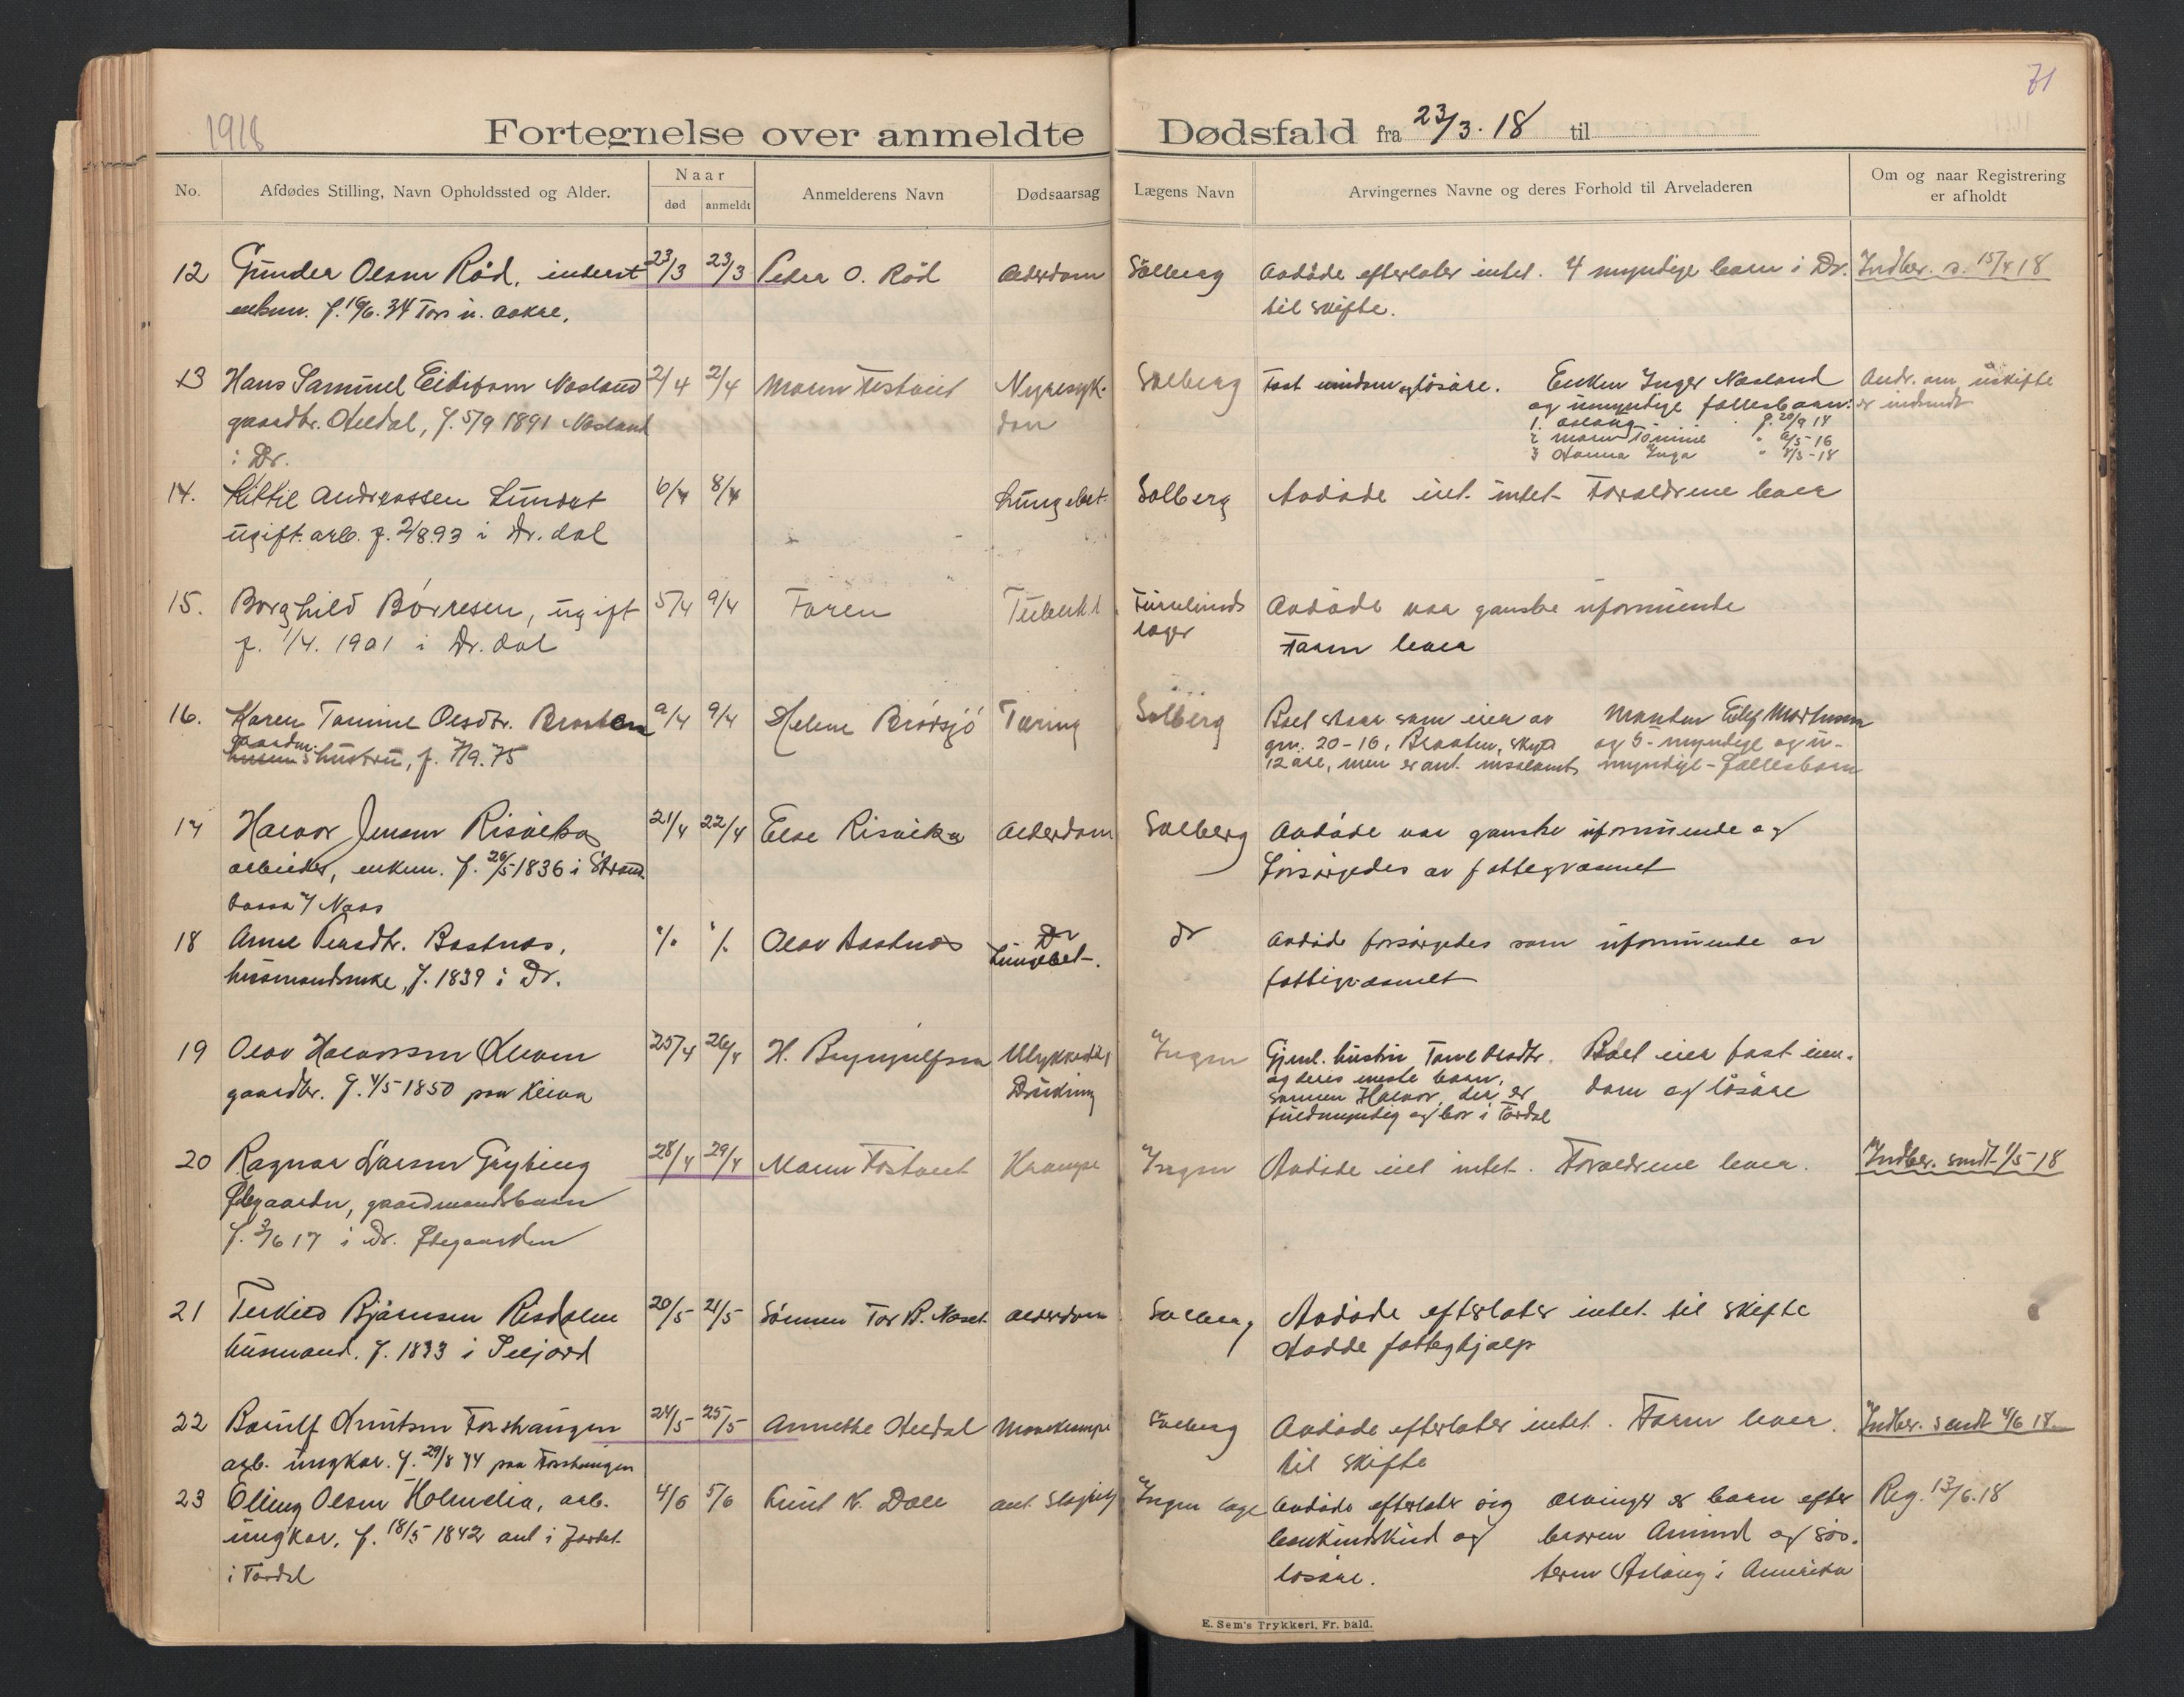 1918
71
Fortegnelse over anmeldte Dødsfald fra 23/3. 18 til
No.
Afdødes Stilling, Navn Opholdssted og Alder.
Naar
død
anmeldt
Anmelderens Navn
Dødsaarsag
Lægens Navn
Arvingernes Navne og deres Forhold til Arveladeren
Om og naar Registrering
er afholdt
12 Gunder Olsen Rød, inderst 23/3 23/3 Petra O. Rød Alderdom Solberg Avdøde efterlater intet. 4 myndige barn i Dr. Indber. s. 15/4 18
enkem. f. 34
til skifte.
13 Hans Samuel Næsland 2/4 2/4 Maren Tostveit Nyresyk- Solberg Fast eiendom og løsøre. Enken Inger Næsland Andr. om uskifte
gaardbr. f. 5/9 1891 Næsland dom og umyndige fællesbarn: er indsendt
i Dr.
1. Aslaug f. 20/9 14
2 Maren Tomine " 6/5-16
3 Hanna Inga " 8/3-18
14. Kittil Andreassen Lundet 6/4 8/4 Lungebet. Solberg Avdøde eiet intet. Forældrene lever
ugift arb. f. 2/8 93 i Dr. dal
15. Borghild Børresen, ugift 5/4 9/4 Faren Tuberkl. Furulunds Avdøde var ganske uformuende
f. 1/4. 1901 i Dr. dal
læger
Faren lever
16. Karen Tomine Olsdtr. Braaten 9/4 9/4 Helene Brødsjø Tæring Solberg Boet staar som eier av Manden Eilef Mortensen
gaardm. hustru, f. 7/9. 75
gnr. 20-16, Braaten, skyld og 5 myndige og u-
12 øre, men er ant. insolvent myndige fællesbarn
17 Halvor Jensen Risvika 21/4 22/4 Else Risvika Alderdom Solberg Avdøde var ganske uformuende og
arbeider, enkem. f. 26/5 1836 i
forsørgedes av fattigvæsenet
18 Anne Bastnæs, Olav Bastnæs Lungebet. Dr
Avdøde forsørgedes som uformuende av
husmandsenke, f. 1839 i Dr.
fattigvæsenet
19 Olav Halvorsen Kleven 25/4 26/4 H. Brynjulfsen Ulykkestilf. Ingen Gjenl. hustru Tone Boet eier fast eien-
gaardbr. f. 4/5 1850 paa Druknning og deres eneste barn, dom og løsøre
sønnen Halvor, der er
fuldmyndig og bor i Tørdal
20 Ragnar Larsen Gryting 28/4 29/4 Maren Tostveit Krampe Ingen Avdøde eiet intet. Forældrene lever. Indber. sendt 1/5-18
Ødegaarden, gaardmandsbarn
f. 3/6 17 i Dr. Ødegaarden
21 Terkild Bjørnsen Risdalen 20/5 21/5 Sønnen Tor B. Næset Alderdom Solberg Avdøde efterlater intet til skifte
husmand. f. 1833 i Seljord
Hadde fattighjælp
22 Knutsen 24/5 25/5 Annette Solberg Avdøde efterlater intet. Faren lever. Indber. sendt 4/6 18
arb. ungkar. f. 29/8 44 paa
til skifte
23 Elling Olsen Holmelia, arb. 4/6 5/6 Knut N. Dale ant. Slagtilf. Ingen læge Avdøde efterlater sig arvinger er barn efter Reg. 13/6.18
ungkar, f. 18/5 1842 ant i
bankindskud og broren Amund og søs-
i Tørdal
løsøre. teren Aslaug i Amerika
E. Sem's Trykkeri, Fr. hald.